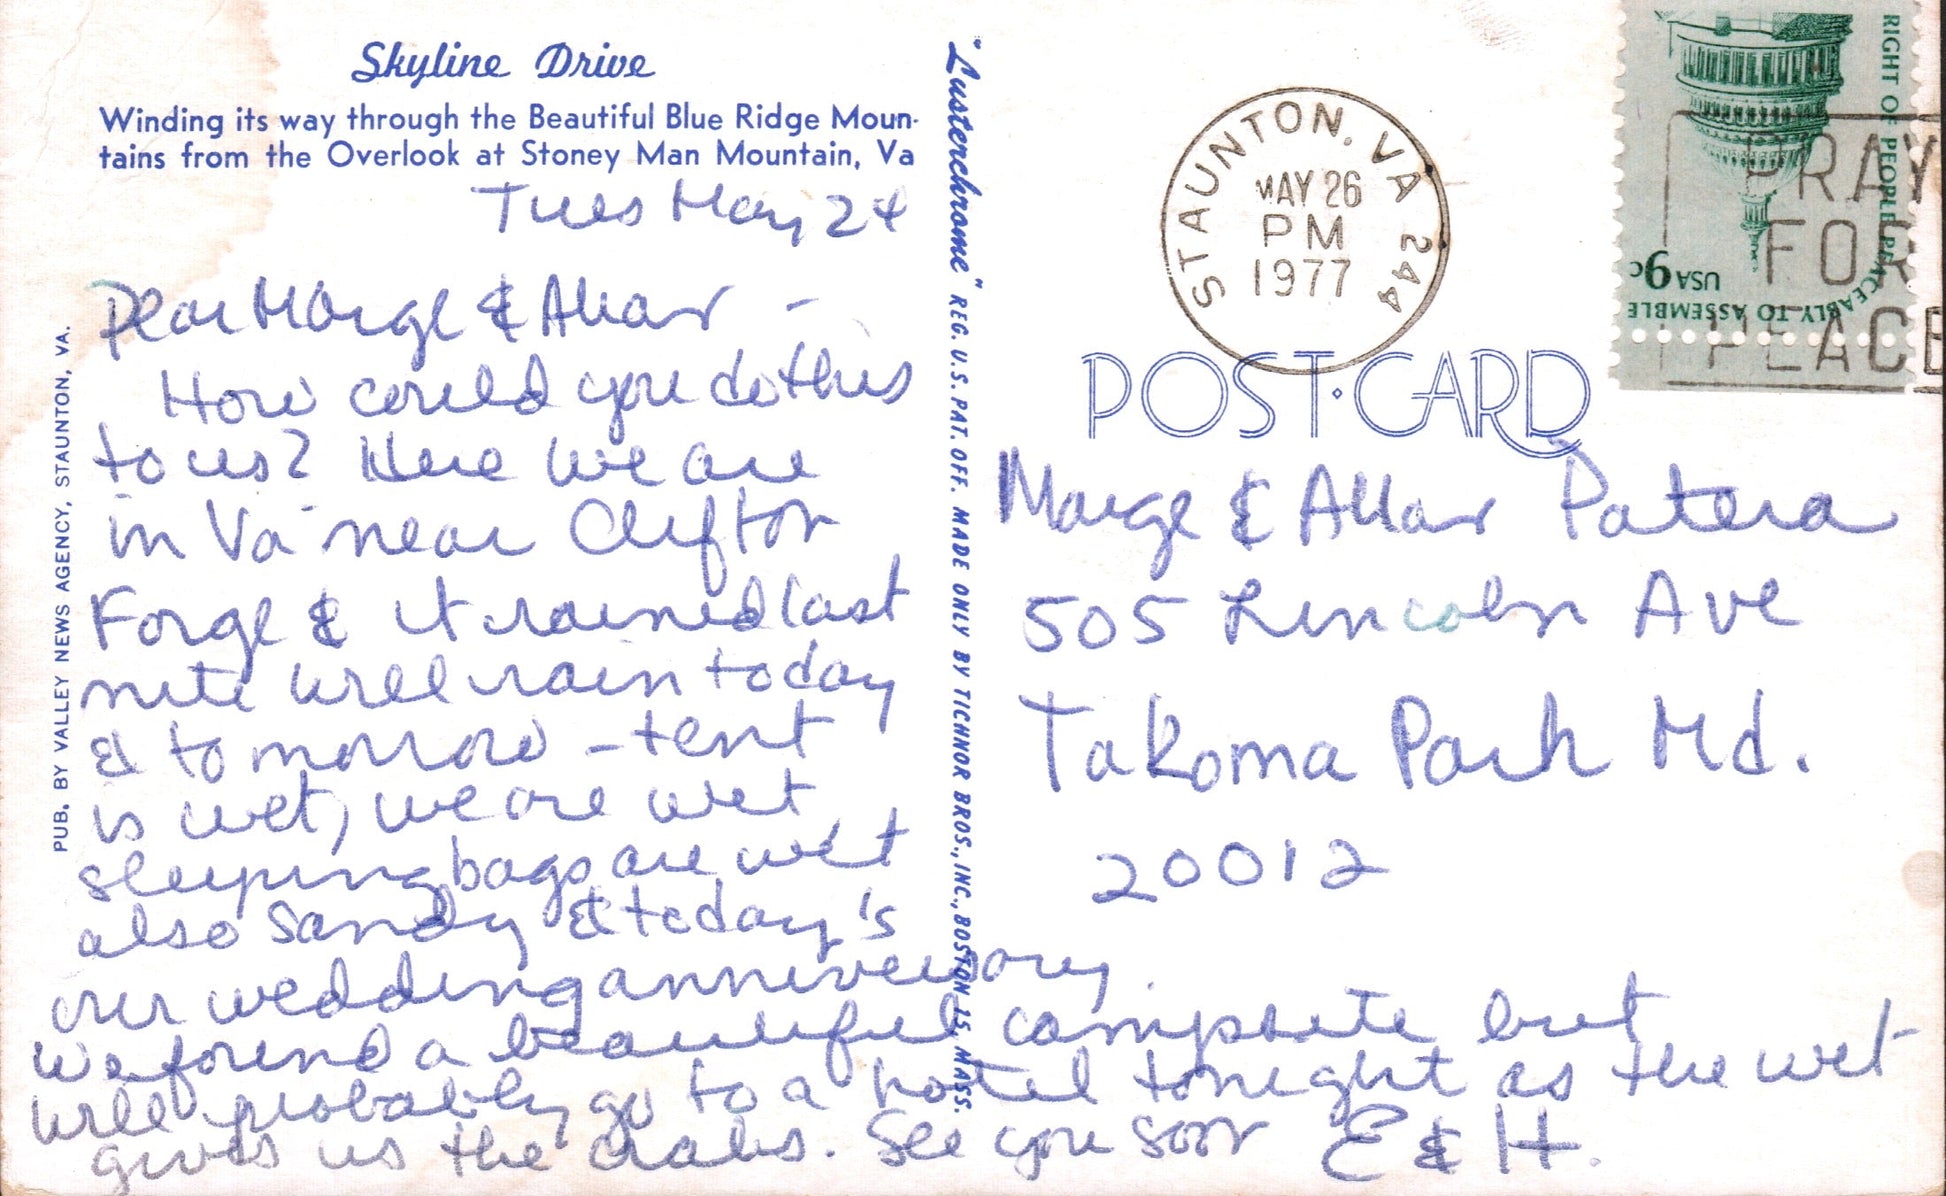 Skyline Drive
Winding its way through the Beautiful Blue Ridge Moun-
tains from the Overlook at Stoney Man Mountain, Va
Tues May 24
Dear Marge & Allan -
How could you do this
to us? Here we are
in Va near Clifton
Forge & it rained last
nite will rain today
& tomorrow - tent
is wet, we are wet,
sleeping bags are wet
also sandy & today's
our wedding anniversary.
We found a beautiful campsite but
will probably go to a hotel tonight as the wet
gives us the crabs. See you soon E & H.
PUB. BY VALLEY NEWS AGENCY, STAUNTON, VA.
"Lusterchrome" REG. U.S. PAT. OFF. MADE ONLY BY TICHNOR BROS., INC., BOSTON 15, MASS.
STAUNTON, VA 244
MAY 26
PM
1977
RIGHT OF PEOPLE PEACEABLY TO ASSEMBLE
USA 9c
PRAY
FOR
PEACE
POST CARD
Marge & Allan Patera
505 Lincoln Ave
Takoma Park Md.
20012